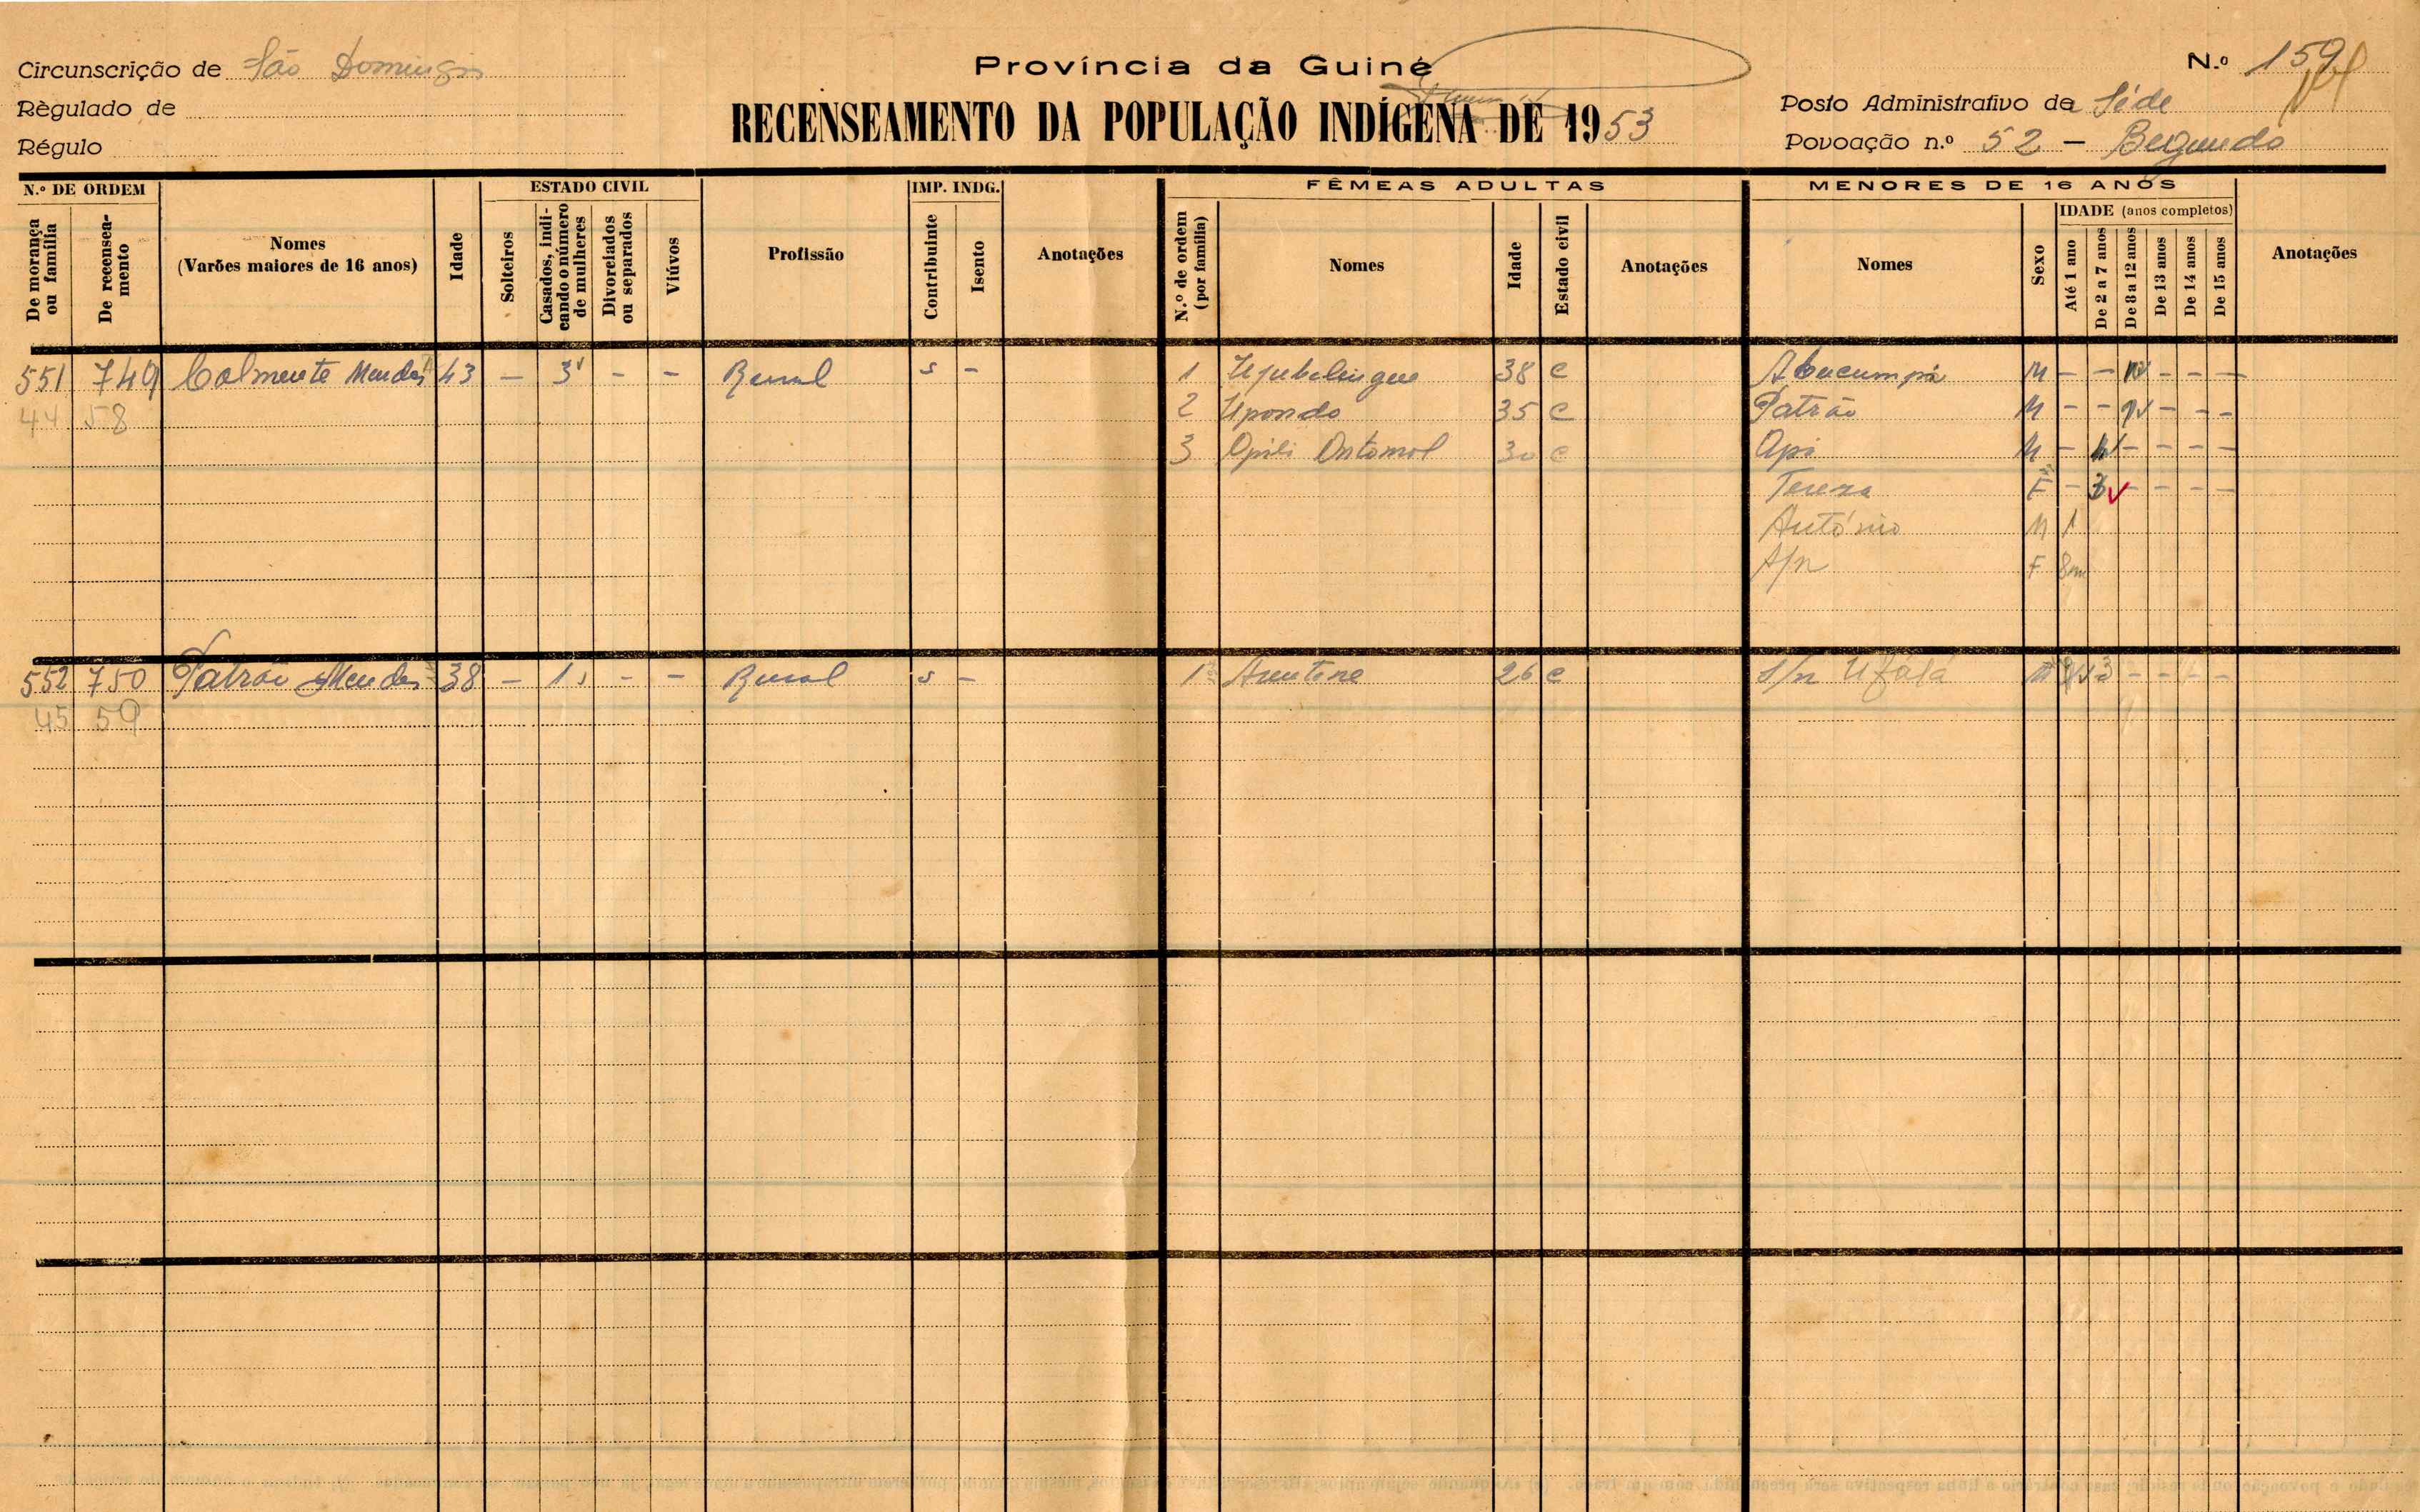 Província da Guiné
RECENSEAMENTO DA POPULAÇÃO INDÍGENA DE 1953
Circunscrição de São Domingos
Règulado de
Régulo
N.º 159
Posto Administrativo da Séde
Povoação n.º 52 - Begundo
N.º DE ORDEM
De morança ou família
De recenseamento
Nomes
(Varões maiores de 16 anos)
Idade
ESTADO CIVIL
Solteiros
Casados, indi-
cando o número
de mulheres
Divorciados
ou separados
Viúvos
Profissão
IMP. INDG.
Contribuinte
Isento
Anotações
FÊMEAS ADULTAS
N.º de ordem
(por família)
Nomes
Idade
Estado civil
Anotações
MENORES DE 16 ANOS
Nomes
Sexo
IDADE (anos completos)
Até 1 ano
De 2 a 7 anos
De 8 a 12 anos
De 13 anos
De 14 anos
De 15 anos
Anotações
551 749 Calmente Mendes 43 - 3 - - Rural s - 1 Ujubelingue 38 C Abucumpá M - - - - -
44 58 2 Upondo 35 C Patrão M - - 9 - - -
3 Opili Ontomol 30 C Api M - - - - -
Tereza F - 3 - - - -
António M 1
S/n F 8m
552 750 Patrão Mendes 38 - 1 - - Rural s - 1 Auntene 26 C S/n Ufala M - - - -
45 59